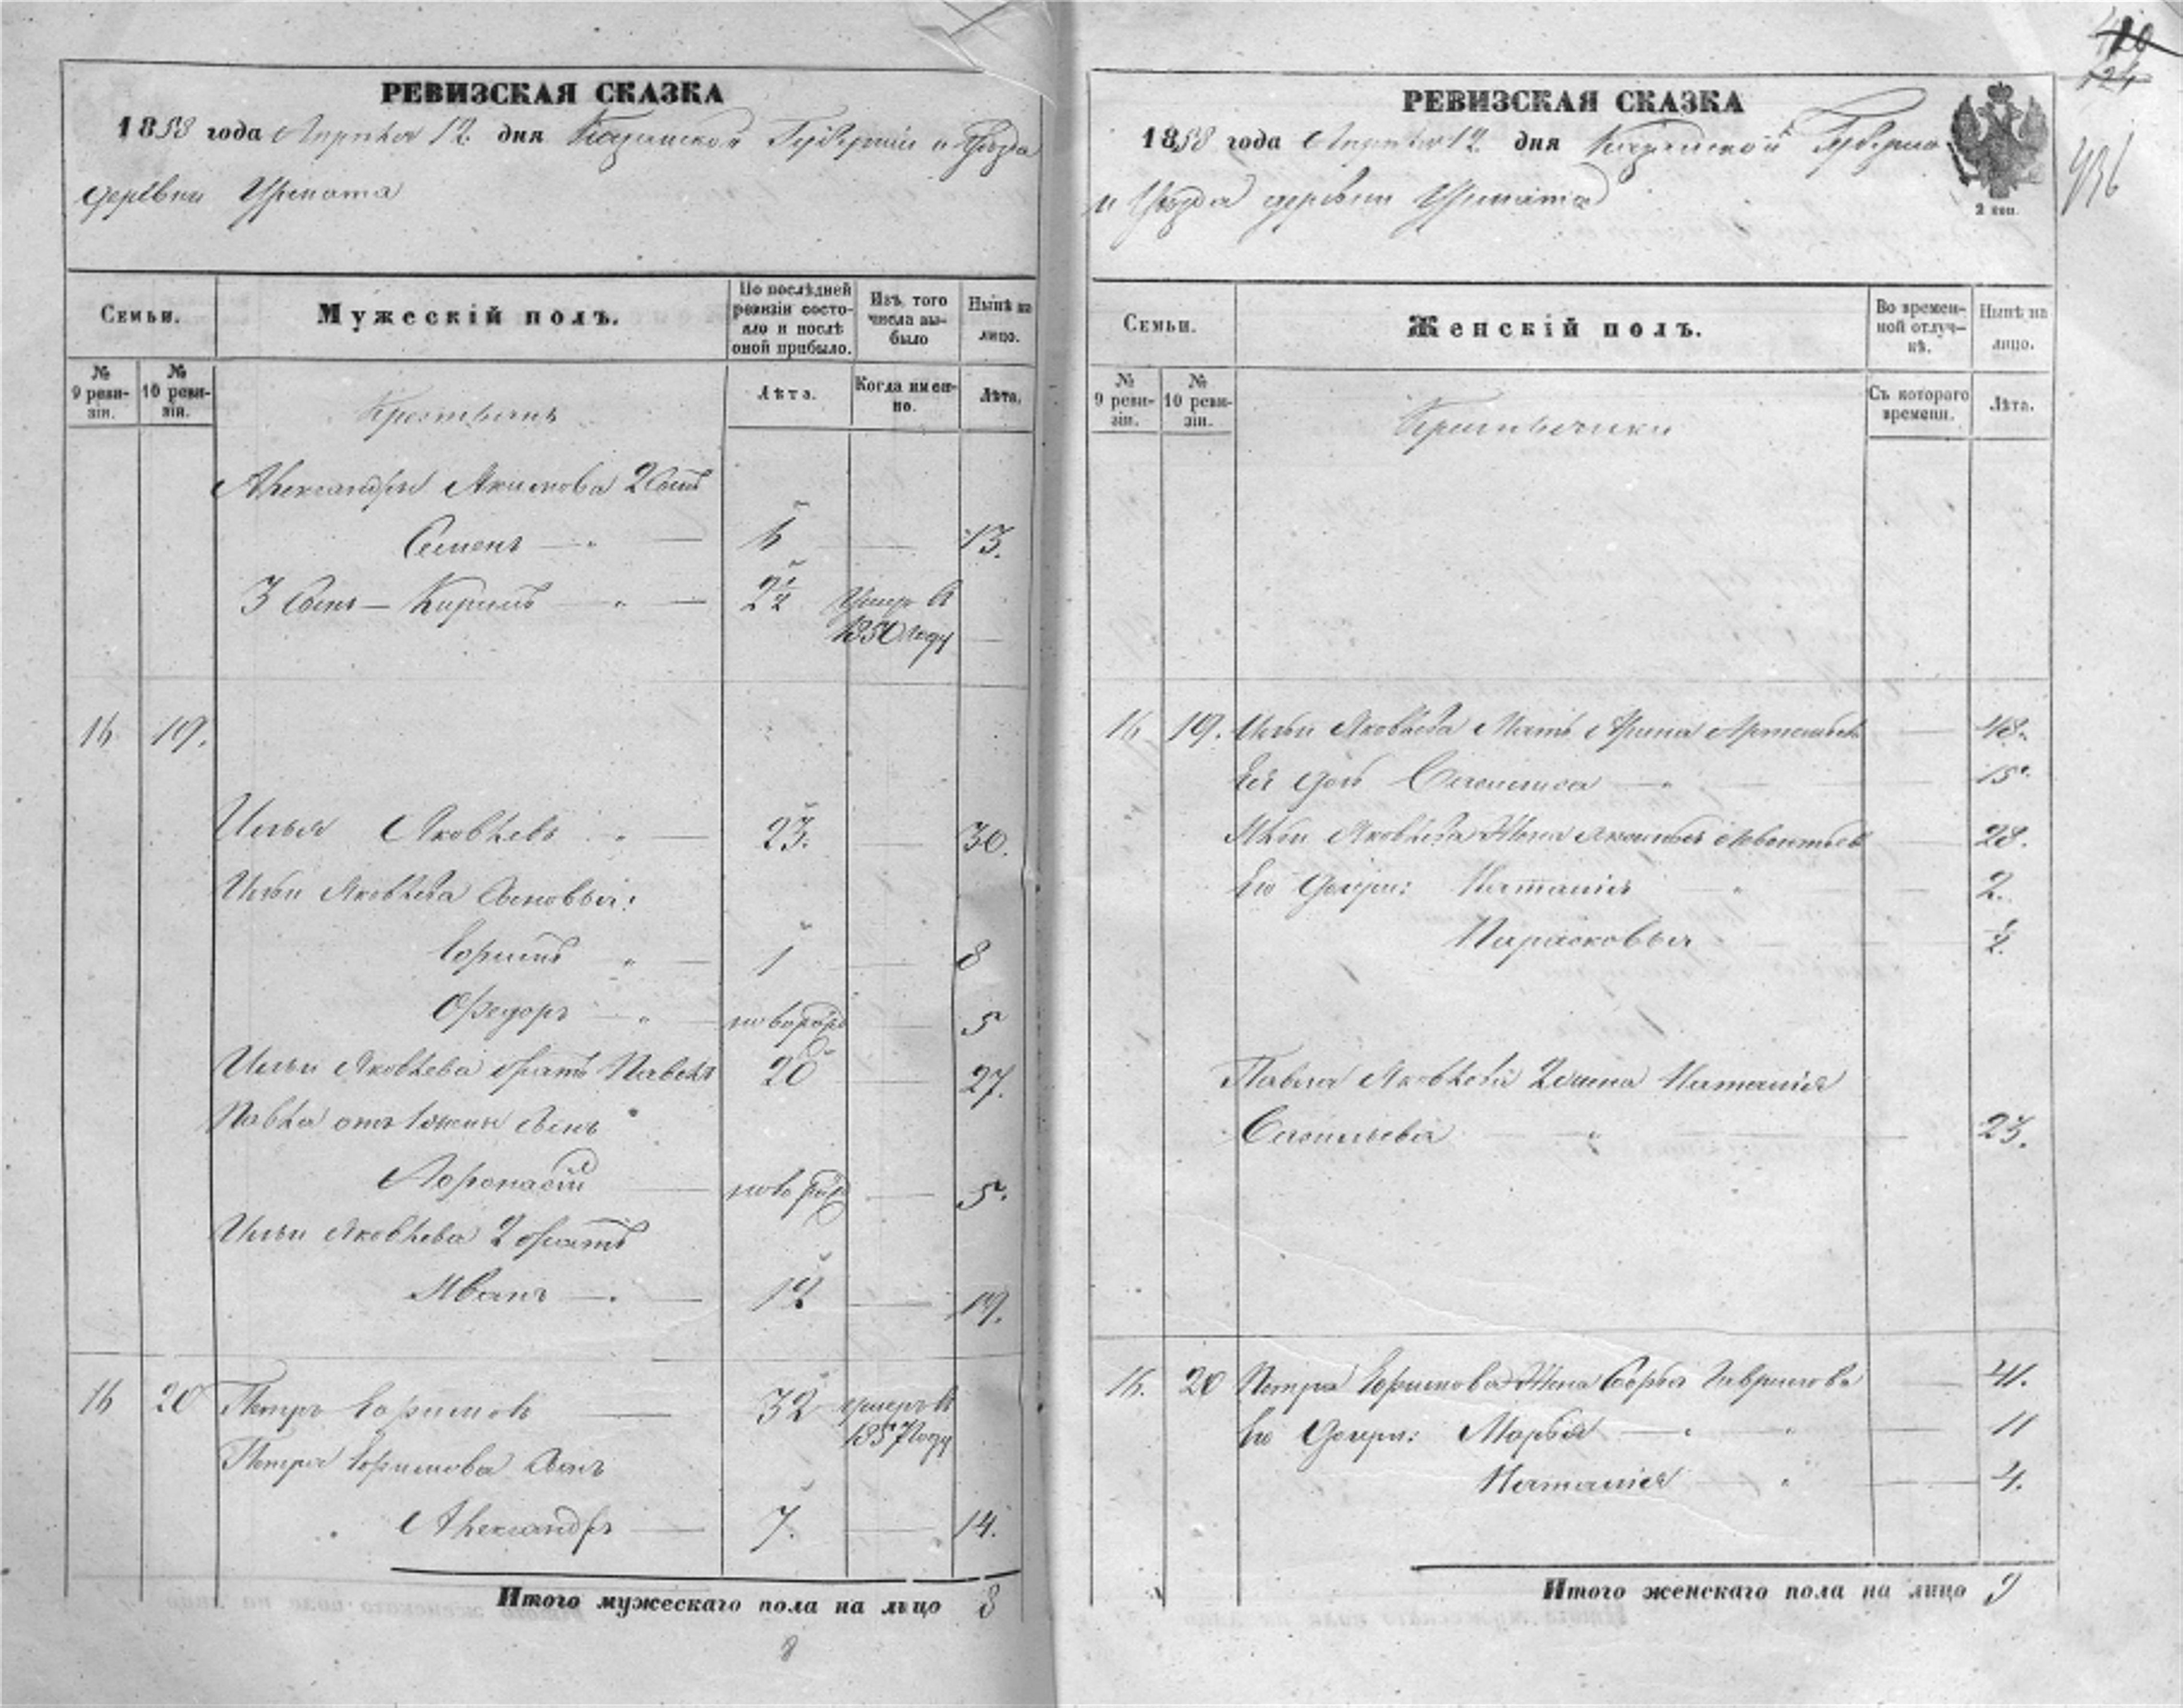 РЕВИЗСКАЯ СКАЗКА
1858 года Апреля 12 дня Казанской Губернiи и Уѣзда
деревни Урмата
Семьи.
Мужескiй полъ.
По послѣдней ревизiи состояло и послѣ оной прибыло.
Изъ того числа выбыло
Нынѣ на лицо.
№ 9 ревизiи.
№ 10 ревизiи.
Крестьянъ
Лѣта.
Когда именно.
Лѣта.
Александра Акимова 2 сынъ
Семенъ — " — 6 — 13.
3 Сынъ — Кирилъ — " — 2½ Умеръ въ
1850 году —
16 19.
Илья Яковлевъ " — 23. — 30.
Ильи Яковлева Сыновья:
Ефимъ " — 1 — 8
Федоръ — " — новорож — 5
Ильи Яковлева братъ Павелъ 20 — 27.
Павла отъ 1 жены сынъ
Афонасiй — новорож — 5.
Ильи Яковлева 2 братъ
Иванъ — " — 12 — 19.
16 20 Петръ Ефимовъ — 32 умеръ въ
1857 году
Петра Ефимова Сынъ
Александръ — 7. — 14.
Итого мужескаго пола на лицо 8
8
РЕВИЗСКАЯ СКАЗКА
1858 года Апреля 12 дня Казанской Губернiи
и Уѣзда деревни Урмата
2 коп.
420
424
436
Семьи.
Женскiй полъ.
Во временной отлучкѣ.
Нынѣ на лицо.
№ 9 ревизiи.
№ 10 ревизiи.
Крестьянки
Съ котораго времени.
Лѣта.
16 19. Ильи Яковлева Мать Арина Артемьева — 48.
Ея дочь Василиса — " — 15.
Ильи Яковлева Жена Леонтьева — 28.
Его дочери: Наталiя " — 2.
Парасковья — ½.
Павла Яковлева 2 жена Наталiя
Васильева — " — 23.
16. 20 Петра Ефимова Жена Гаврилова — 41.
Его дочери: Марья — " — 11
Наталiя — " — 4.
Итого женскаго пола на лицо 9